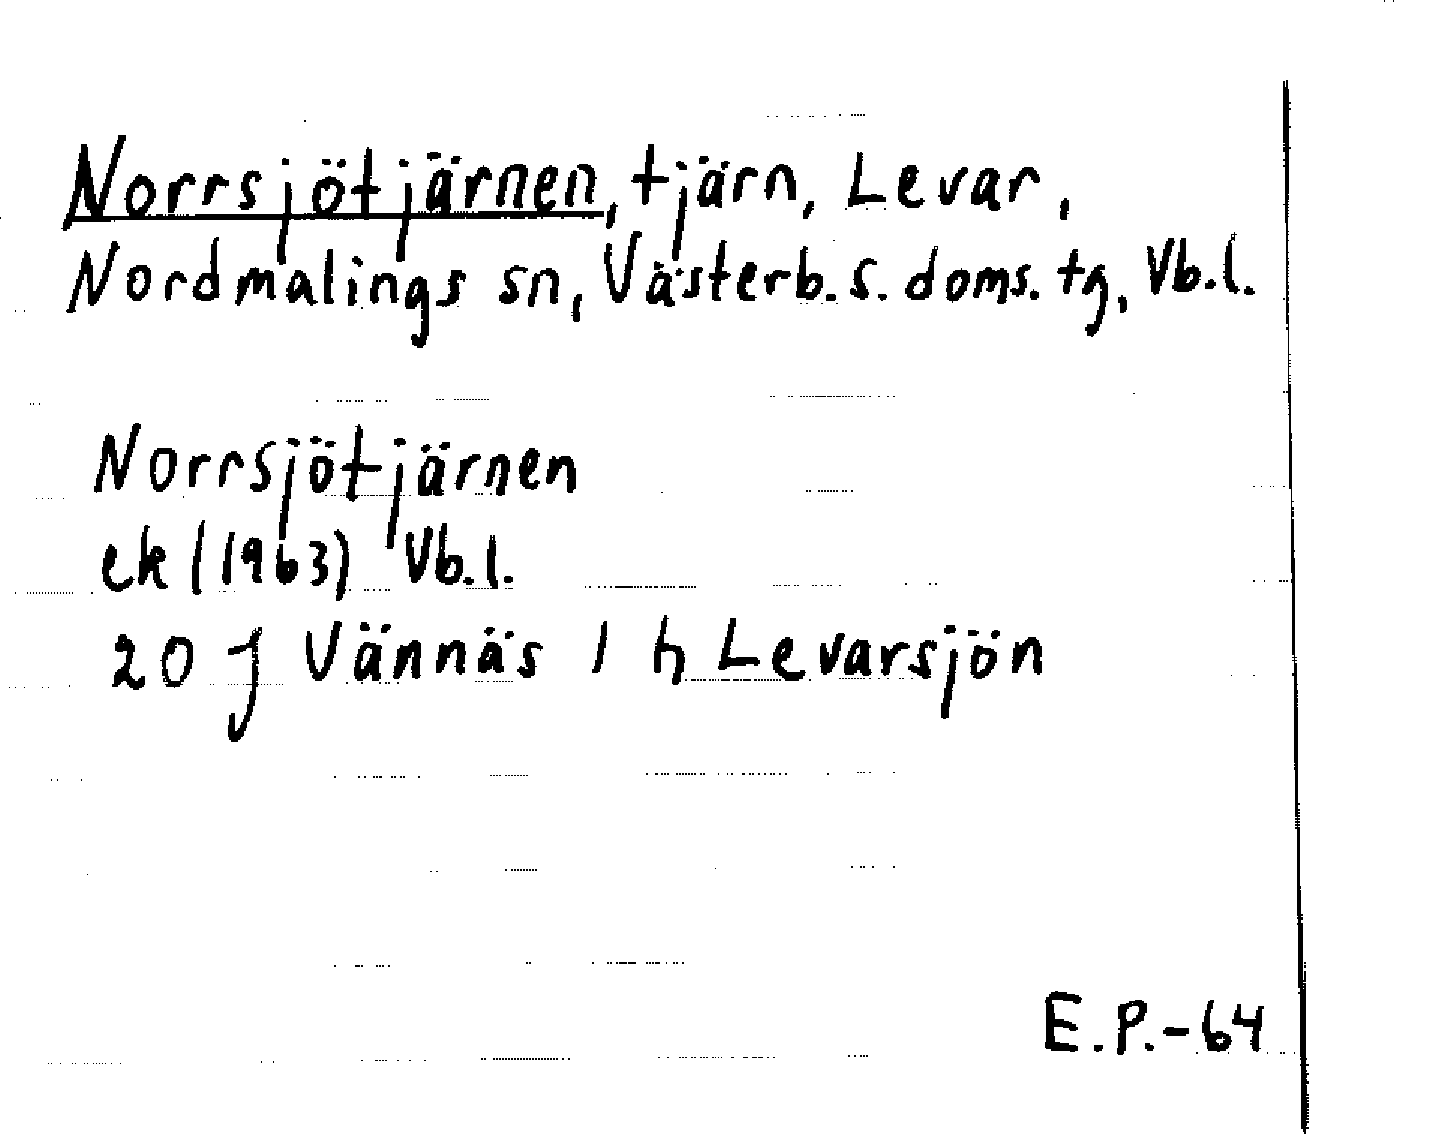 Norrsjötjärnen, tjärn, Levar,
Nordmalings sn, Västerb. s. doms. tg, Vb.l.
Norrsjötjärnen
ek (1963) Vb.l.
20 J Vännäs 1 h Levarsjön
E.P.-64